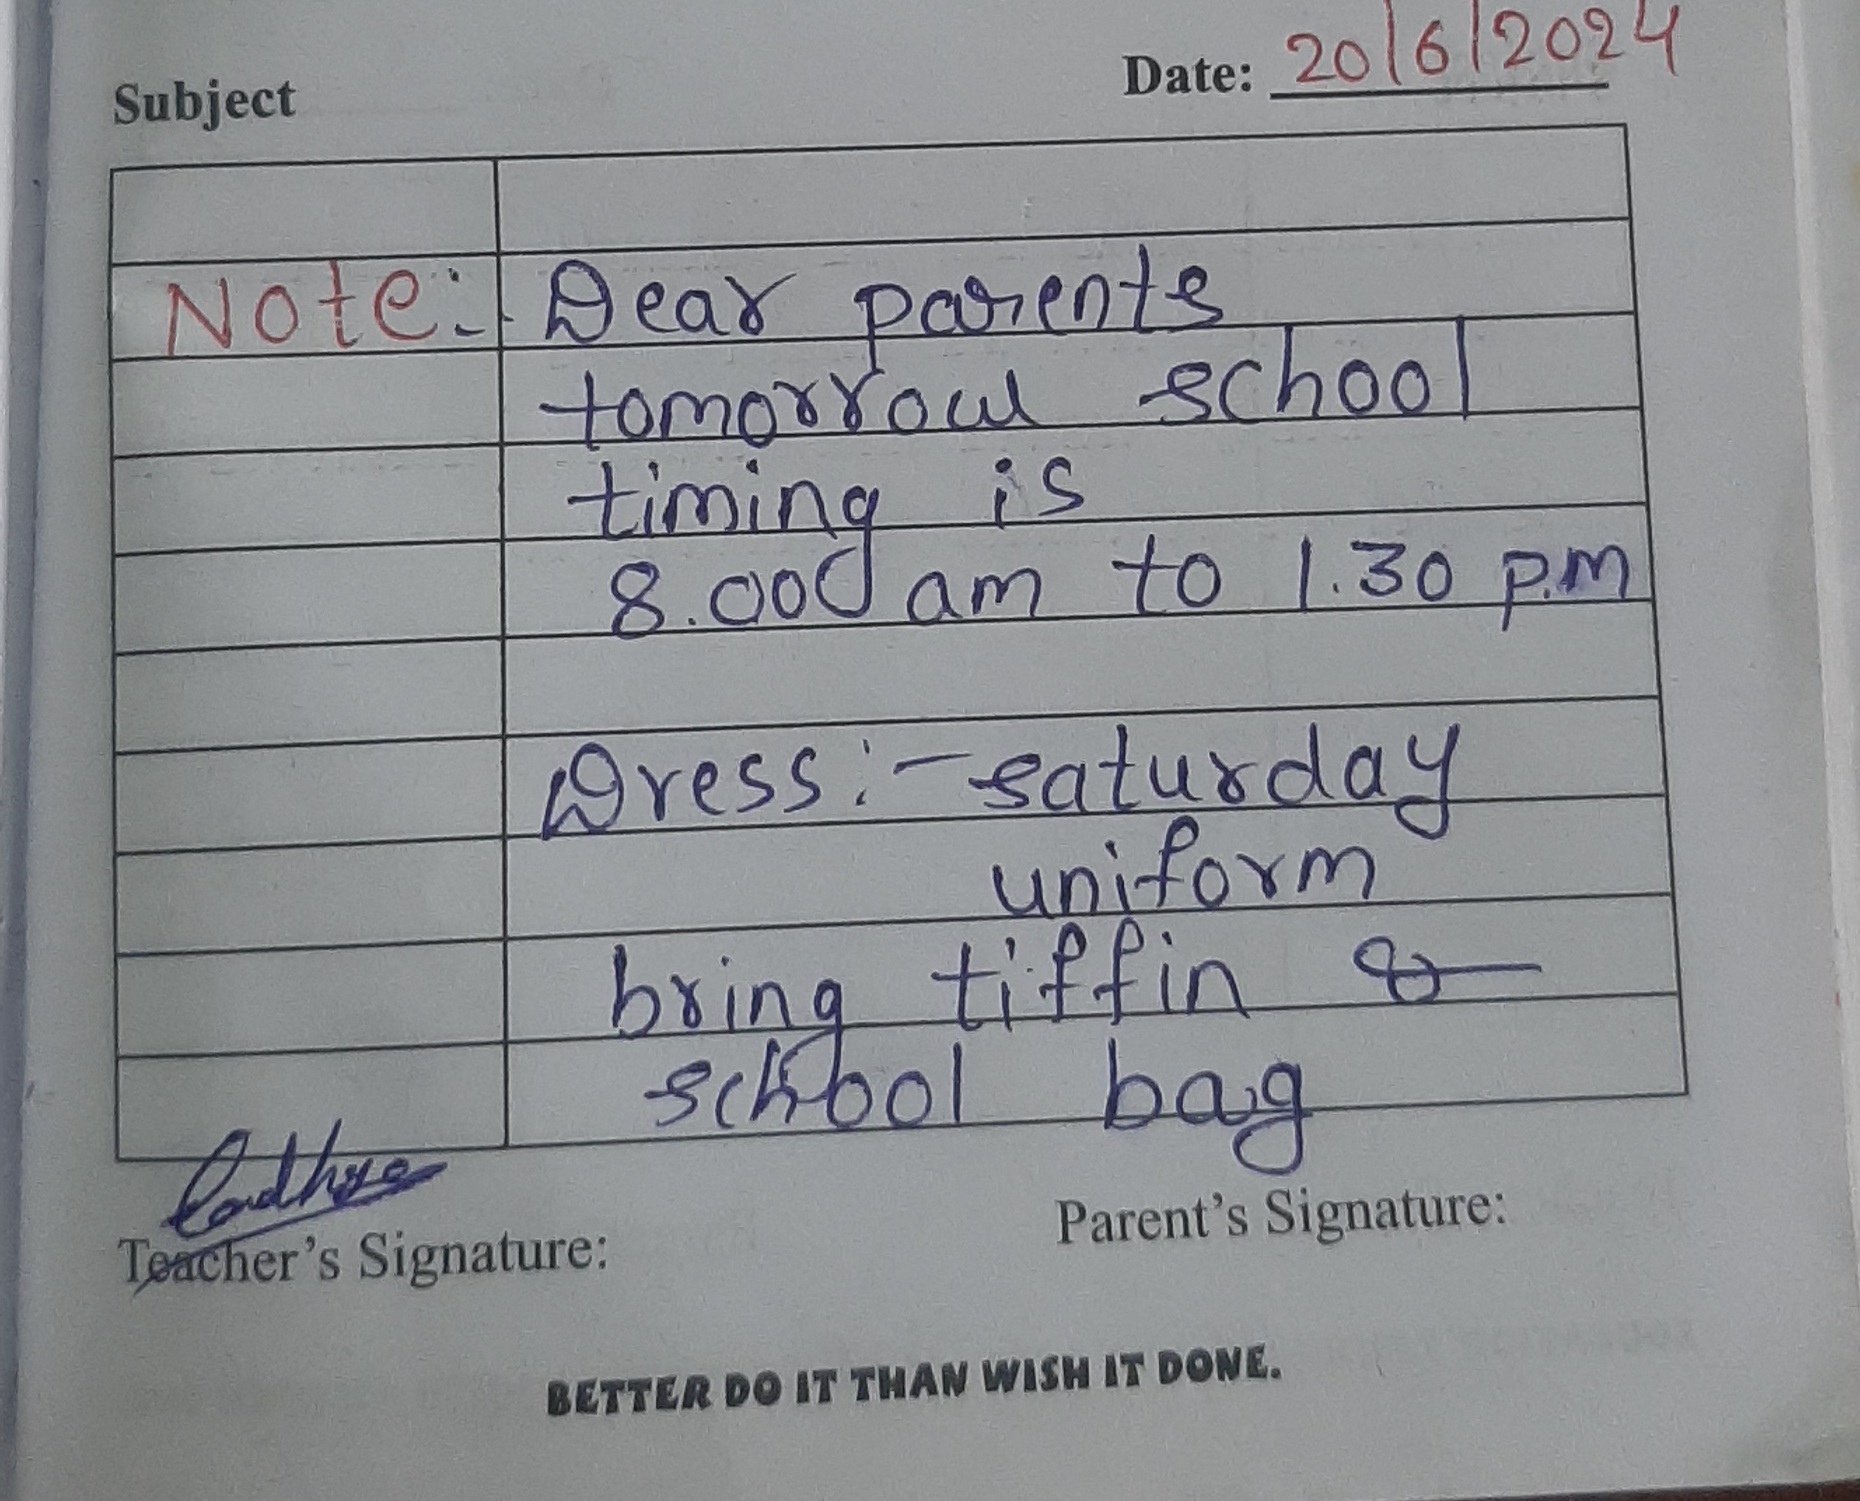 Subject
Date: 20/6/2024
Note:- Dear parents
tomorrow school
timing is
8.00 am to 1.30 p.m
Dress:- saturday
uniform
bring tiffin &
school bag
Teacher's Signature:
Parent's Signature:
BETTER DO IT THAN WISH IT DONE.